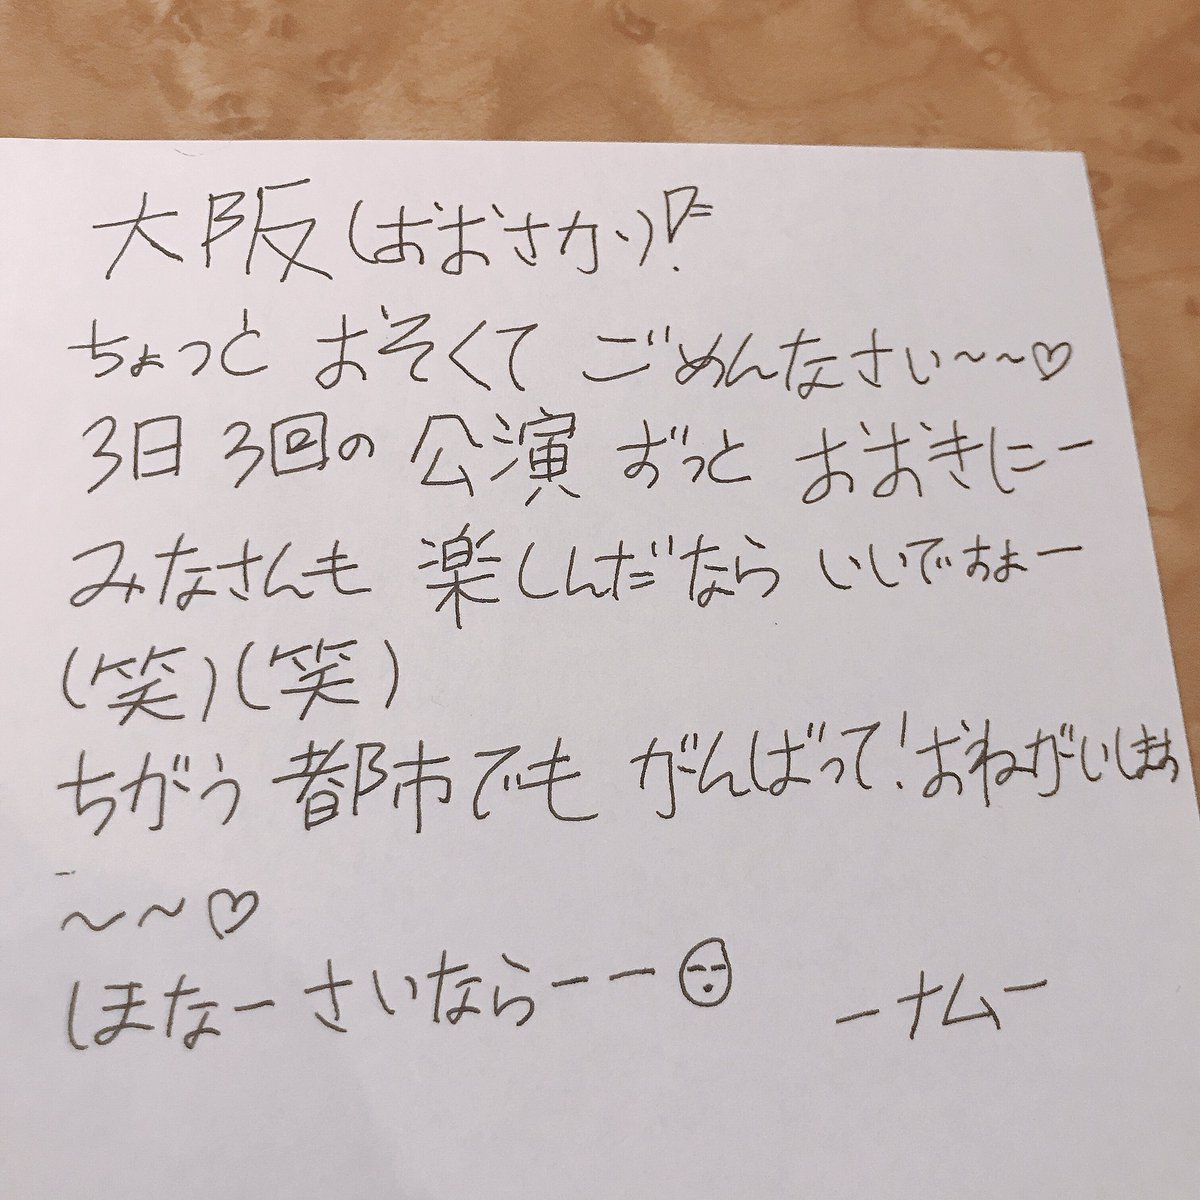 大阪(おおさか)!
ちょっと おそくて ごめんなさい~~~♡
3日 3回の 公演 ずっと おおきにー
みなさんも 楽しんだなら いいでちょー
(笑)(笑)
ちがう 都市でも がんばって!おねがいしまち
~~♡
ほなーさいならーー ーナムー